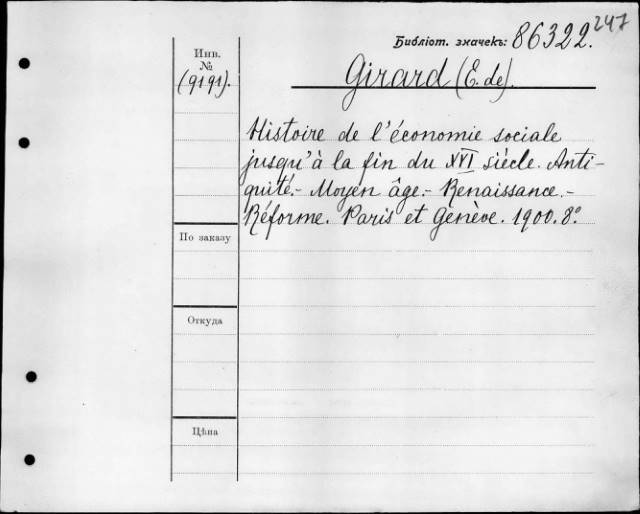 247
Библіот. значекъ: 86322.
Инв.
№
(9191).
Girard (E. de).
Histoire de l'économie sociale
jusqu'à la fin du XVI siècle. Anti-
quité.- Moyen âge.- Renaissance.-
Réforme. Paris et Genève. 1900. 8º
По заказу
Откуда
Цѣна